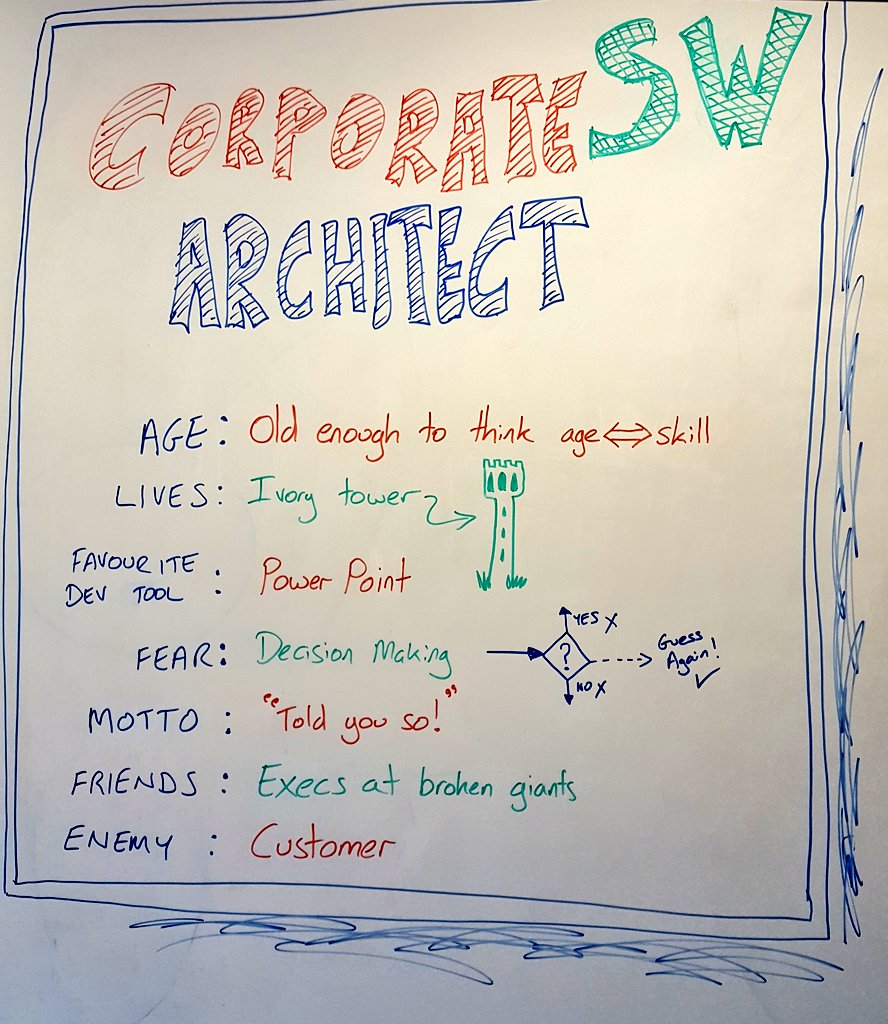 CORPORATE SW
ARCHITECT
AGE: Old enough to think age⇔skill
LIVES: Ivory tower
FAVOURITE
DEV TOOL : Power Point
FEAR: Decision Making
? YES X
NO X
Guess
Again! ✓
MOTTO : "Told you so!"
FRIENDS : Execs at broken giants
ENEMY : Customer